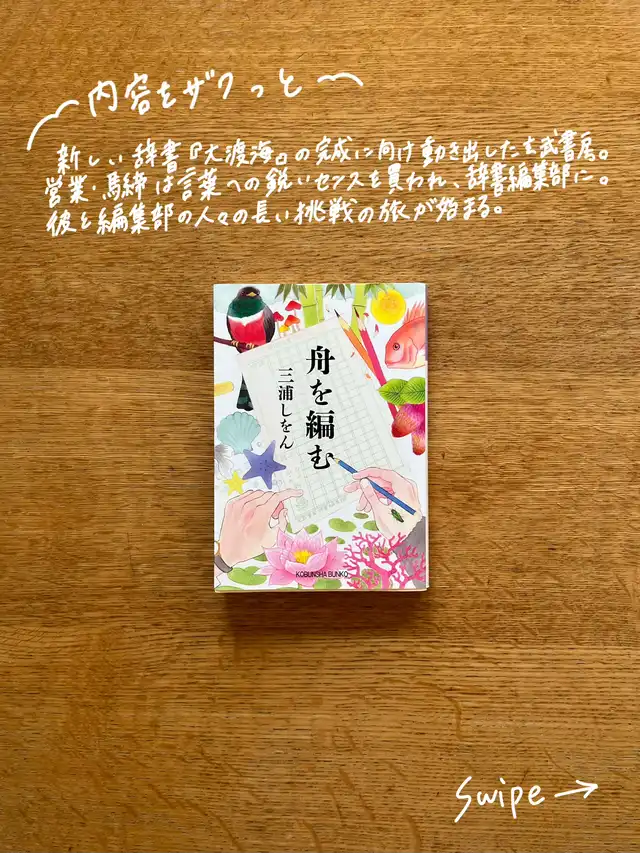 内容をザクっと
新しい辞書『大渡海』の完成に向け動き出した玄武書房。
営業・馬締は言葉への鋭いセンスを買われ、辞書編集部に。
彼と編集部の人々の長い挑戦の旅が始まる。
舟を編む
三浦しをん
KOBUNSHA BUNKO
Swipe →